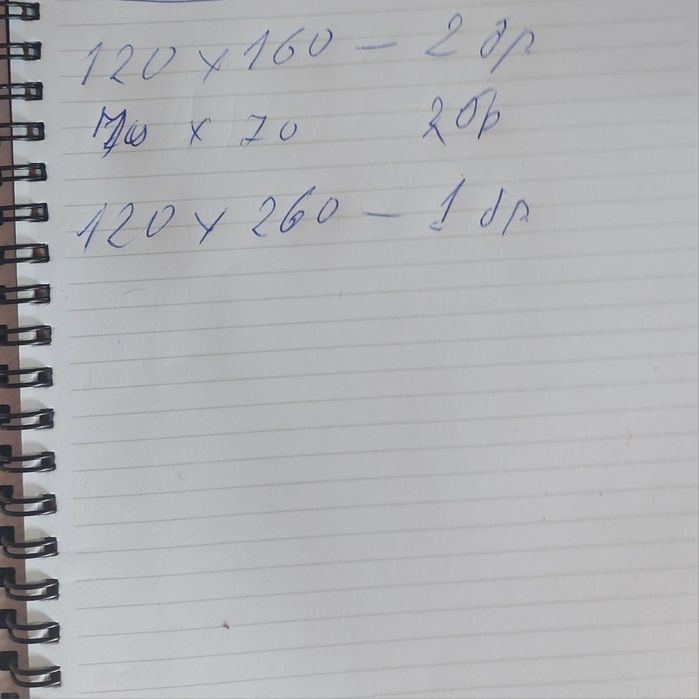 120 x 160 – 2 бр
70 x 70 2 бр
120 x 260 – 1 бр